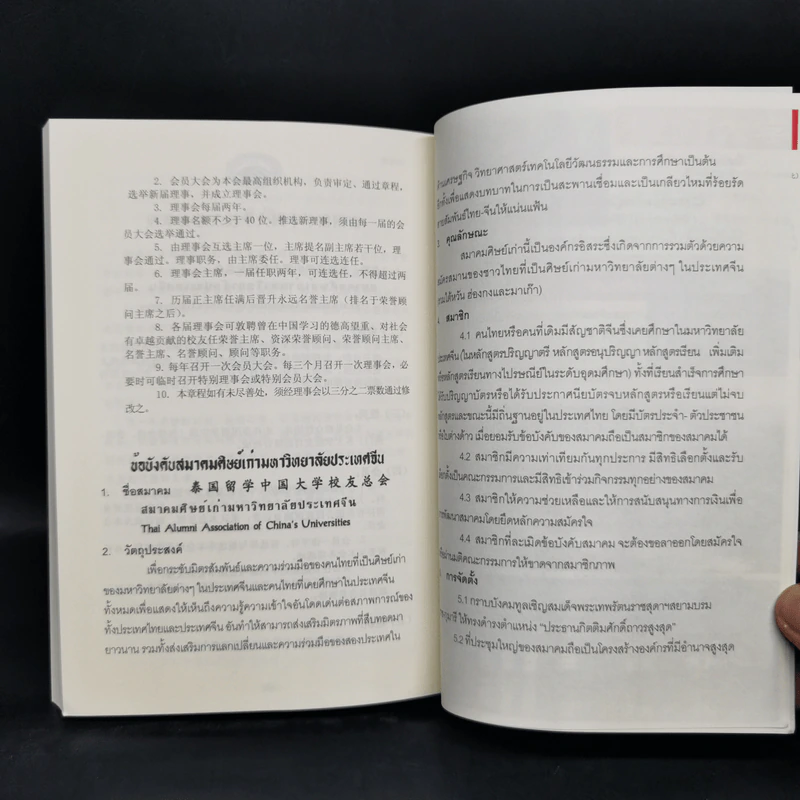 2. 会员大会为本会最高组织机构，负责审定、通过章程，
选举新届理事、并成立理事会。
3. 理事会每届两年。
4. 理事名额不少于 40 位。推选新理事，须由每一届的会
员大会选举通过。
5. 由理事会互选主席一位，主席提名副主席若干位，理
事会通过。理事职务，由主席委任。理事可连选连任。
6. 理事会主席，一届任职两年，可连选任，不得超过两
届。
7. 历届正主席任满后晋升永远名誉主席（排名于荣誉顾
问主席之后）。
8. 各届理事会可敦聘曾在中国学习的德高望重、对社会
有卓越贡献的校友任荣誉主席、资深荣誉顾问、荣誉顾问主席、
名誉主席、名誉顾问、顾问等职务。
9. 每年召开一次会员大会。每三个月召开一次理事会，必
要时可临时召开特别理事会或特别会员大会。
10. 本章程如有未尽善处，须经理事会以三分之二票数通过修
改之。
ข้อบังคับสมาคมศิษย์เก่ามหาวิทยาลัยประเทศจีน
1. ชื่อสมาคม 泰国留学中国大学校友总会
สมาคมศิษย์เก่ามหาวิทยาลัยประเทศจีน
Thai Alumni Association of China's Universities
2. วัตถุประสงค์
เพื่อกระชับมิตรสัมพันธ์และความร่วมมือของคนไทยที่เป็นศิษย์เก่า
ของมหาวิทยาลัยต่างๆ ในประเทศจีนและคนไทยที่เคยศึกษาในประเทศจีน
ทั้งหมดเพื่อแสดงให้เห็นถึงความรู้ความเข้าใจอันโดดเด่นต่อสภาพการณ์ของ
ทั้งประเทศไทยและประเทศจีน อันทำให้สามารถส่งเสริมมิตรภาพที่สืบทอดมา
ยาวนาน รวมทั้งส่งเสริมการแลกเปลี่ยนและความร่วมมือของสองประเทศใน
ด้านเศรษฐกิจ วิทยาศาสตร์เทคโนโลยีวัฒนธรรมและการศึกษาเป็นต้น
อีกทั้งเพื่อแสดงบทบาทในการเป็นสะพานเชื่อมและเป็นเกลียวไหมที่ร้อยรัด
สายสัมพันธ์ไทย-จีนให้แน่นแฟ้น
3 คุณลักษณะ
สมาคมศิษย์เก่านี้เป็นองค์กรอิสระซึ่งเกิดจากการรวมตัวด้วยความ
สมัครสมานของชาวไทยที่เป็นศิษย์เก่ามหาวิทยาลัยต่างๆ ในประเทศจีน
(รวมไต้หวัน ฮ่องกงและมาเก๊า)
4 สมาชิก
4.1 คนไทยหรือคนที่เดิมมีสัญชาติจีนซึ่งเคยศึกษาในมหาวิทยาลัย
ประเทศจีน (ในหลักสูตรปริญญาตรี หลักสูตรอนุปริญญา หลักสูตรเรียน เพิ่มเติม
หรือหลักสูตรเรียนทางไปรษณีย์ในระดับอุดมศึกษา) ทั้งที่เรียนสำเร็จการศึกษา
ได้รับปริญญาบัตรหรือได้รับประกาศนียบัตรจบหลักสูตรหรือเรียนแต่ไม่จบ
หลักสูตรและขณะนี้มีถิ่นฐานอยู่ในประเทศไทย โดยมีบัตรประจำ- ตัวประชาชน
หรือใบต่างด้าว เมื่อยอมรับข้อบังคับของสมาคมถือเป็นสมาชิกของสมาคมได้
4.2 สมาชิกมีความเท่าเทียมกันทุกประการ มีสิทธิเลือกตั้งและรับ
เลือกตั้งเป็นคณะกรรมการและมีสิทธิเข้าร่วมกิจกรรมทุกอย่างของสมาคม
4.3 สมาชิกให้ความช่วยเหลือและให้การสนับสนุนทางการเงินเพื่อ
พัฒนาสมาคมโดยยึดหลักความสมัครใจ
4.4 สมาชิกที่ละเมิดข้อบังคับสมาคม จะต้องขอลาออกโดยสมัครใจ
ผ่านมติคณะกรรมการให้ขาดจากสมาชิกภาพ
การจัดตั้ง
5.1 กราบบังคมทูลเชิญสมเด็จพระเทพรัตนราชสุดาฯสยามบรม
ราชกุมารี ให้ทรงดำรงตำแหน่ง “ประธานกิตติมศักดิ์ถาวรสูงสุด”
5.2 ที่ประชุมใหญ่ของสมาคมถือเป็นโครงสร้างองค์กรที่มีอำนาจสูงสุด